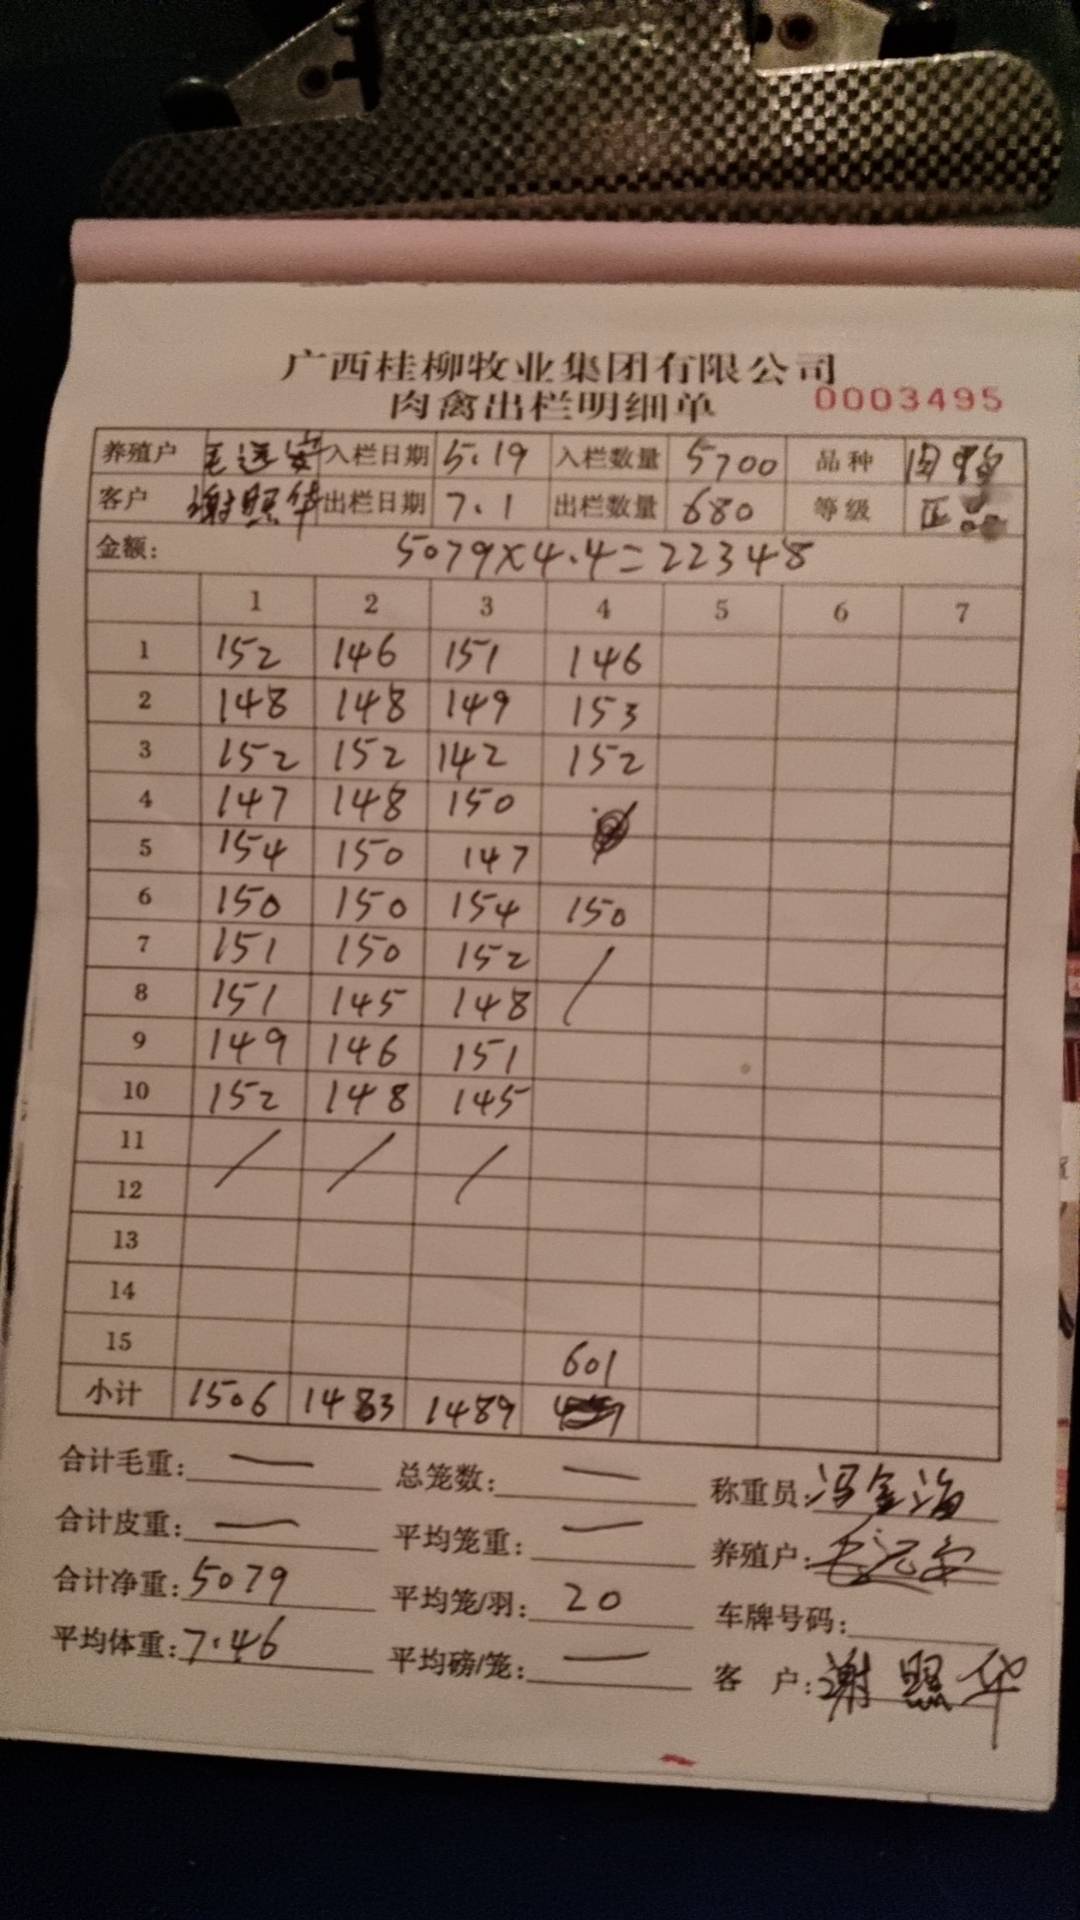 广西桂柳牧业集团有限公司
肉禽出栏明细单 0003495
养殖户 毛远安 入栏日期 5.19 入栏数量 5700 品种 肉鸭
客户 谢照华 出栏日期 7.1 出栏数量 680 等级 正品
金额: 5079×4.4=22348
1 2 3 4 5 6 7
1 152 146 151 146
2 148 148 149 153
3 152 152 142 152
4 147 148 150
5 154 150 147
6 150 150 154 150
7 151 150 152 /
8 151 145 148
9 149 146 151
10 152 148 145
11 / / /
12
13
14
15 601
小计 1506 1483 1489
合计毛重: — 总笼数: — 称重员: 冯金海
合计皮重: — 平均笼重: — 养殖户: 毛远安
合计净重: 5079 平均笼/羽: 20 车牌号码:
平均体重: 7.46 平均磅/笼: — 客 户: 谢照华